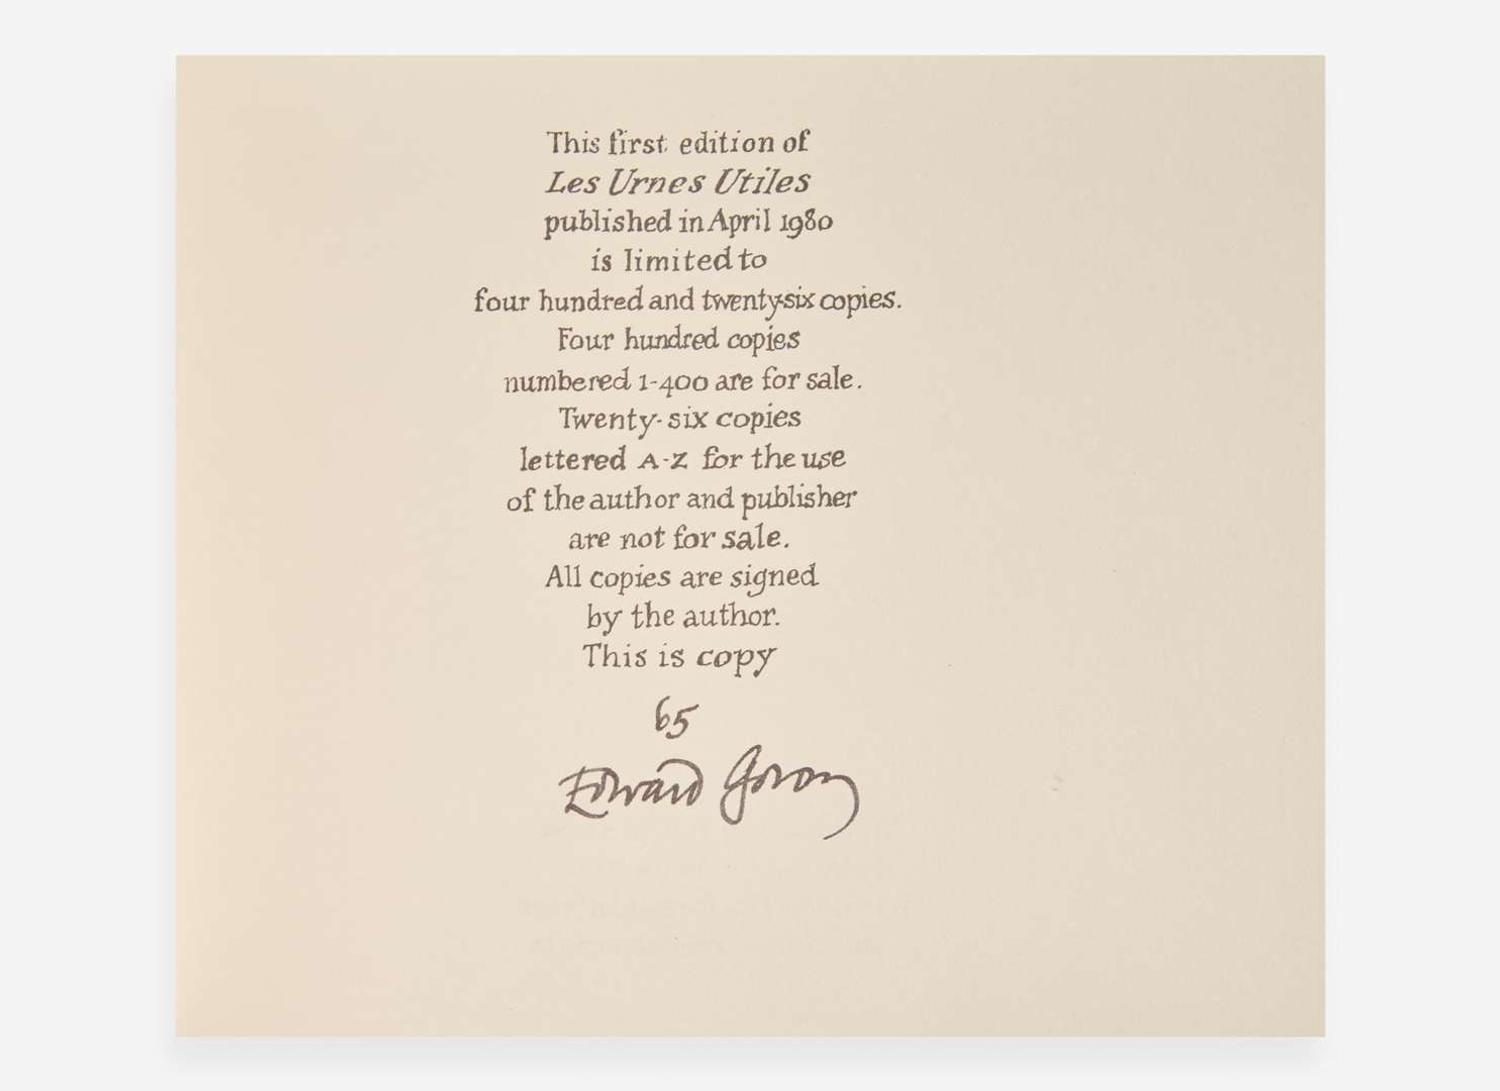 This first edition of
Les Urnes Utiles
published in April 1980
is limited to
four hundred and twenty-six copies.
Four hundred copies
numbered 1-400 are for sale.
Twenty-six copies
lettered A-Z for the use
of the author and publisher
are not for sale.
All copies are signed
by the author.
This is copy
65
Edward Gorey